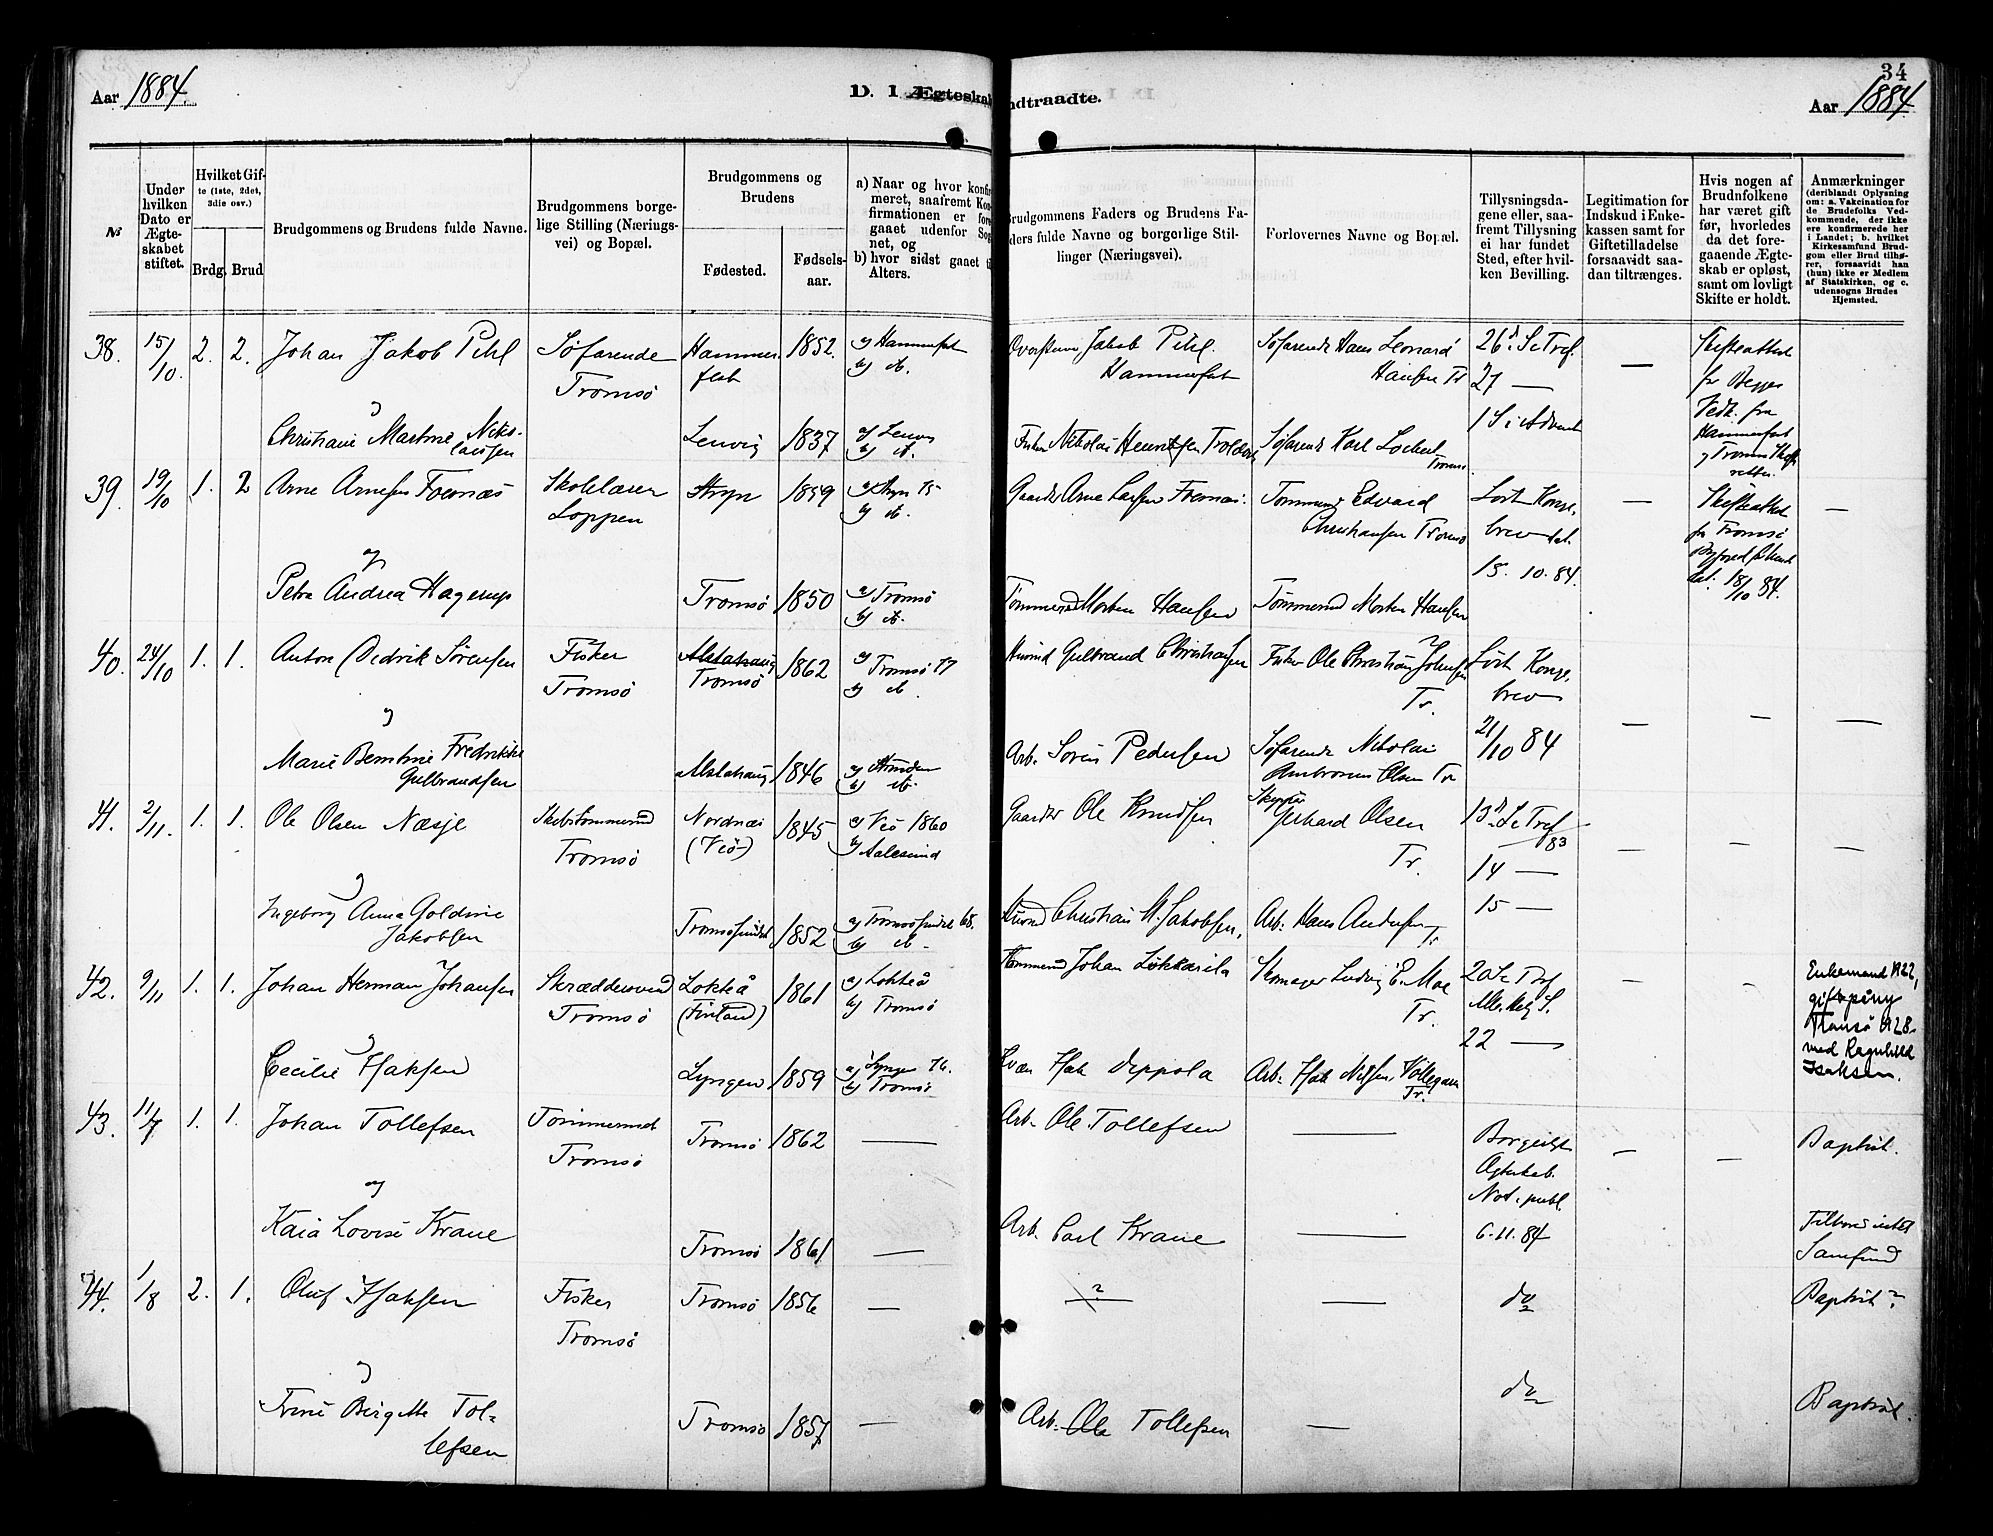 34
Aar 1884.
D. I Ægteskab Indtraadte.
Aar 1884
№
Under hvilken Dato er Ægteskabet stiftet.
Hvilket Gifte (1ste, 2det, 3die osv.)
Brdg. Brud
Brudgommens og Brudens fulde Navne.
Brudgommens borgelige Stilling (Næringsvei) og Bopæl.
Brudgommens og Brudens
Fødested.
Fødselsaar.
a) Naar og hvor konfirmeret, saafremt Konfirmationen er foregaaet udenfor Sognet, og
b) hvor sidst gaaet til Alters.
Brudgommens Faders og Brudens Faders fulde Navne og borgerlige Stillinger (Næringsvei).
Forlovernes Navne og Bopæl.
Tillysningsdagene eller, saafremt Tillysning ei har fundet Sted, efter hvilken Bevilling.
Legitimation for Indskud i Enkekassen samt for Giftetilladelse forsaavidt saadan tiltrænges.
Hvis nogen af Brudnfolkene har været gift før, hvorledes da det foregaaende Ægteskab er opløst, samt om lovligt Skifte er holdt.
Anmærkninger
(deriblandt Oplysning om: a. Vakcination for de Brudefolks Vedkommende, der ikke ere konfirmerede her i Landet; b. hvilket Kirkesamfund Brudgom eller Brud tilhører, forsaavidt han (hun) ikke er Medlem af Statskirken, og c. udensogns Brudes Hjemsted.
38. 15/10. 2. 2. Johan Jakob Pihl Søfarende Tromsø Hammerfest 1852. a) Hammerfest b) do. Jakob Pihl. Hammerfest Søfarende Hans Leonard Hansen Tr 26d S. e Tref. 27 — — Skifteattest for Begges Vedk. fra Hammerfest og Tromsø Skifteretter.
og
Christiane Martine Nikolaisen Lenvig 1837 a) Lenvig b) do. Fisker Nikolai Henriksen Søfarende Karl Lochert Tromsø. 1 S i Advent
39. 19/10 1. 2 Arne Arnesen Foernæs Skolelærer Loppen Stryn 1859 a) Stryn 75 b) do. Gaardbr Arne Larsen Foernæs. Tømmermd Edvard Christiansen Tromsø Løst Kongebrev dat. 15. 10. 84. — Skifteattest fra Tromsø 18/10 84. —
og
Petra Andrea Hagerup Tromsø 1850 a) Tromsø b) do. Tømmermd Morten Hansen Tømmermd Morten Hansen
40. 24/10 1. 1. Anton Didrik Sørensen Fisker Tromsø Alstahaug Tromsø 1862 a) Tromsø 77 b) do. Husmd Gulbrand Christiansen Fisker Ole Christian Johnsen Tr. Løst Kongebrev 21/10 84 — — —
og
Marie Berntine Fredrikke Gulbrandsen Alstahaug 1846 a) b) do. Arb. Søren Pedersen Søfarende Nikolai Ambrosius Olsen Tr
41. 2/11. 1. 1. Ole Olsen Næsje Skibstømmermd Tromsø Nordnæs (Veø) 1845 a) Veø 1860 b) Aalesund Gaardbr Ole Knudsen Skipper Gerhard Olsen Tr. 13d S. e Tref /83 14 — 15 — — — —
og
Ingeborg Anna Goldine Jakobsen Tromsøsundet 1852 a) Tromsøsundet 68. b) do. Husmd Christian M. Jakobsen, Arb. Hans Andersen Tr
42. 9/11 1. 1. Johan Herman Johansen Skræddersvend Tromsø Lokteå (Finland) 1861 a) Lokteå b) Tromsø Tømmermd Johan Løkkarila Skomager Ludvig E. Moe Tr. 20 S. e Tref Alle Helg. S. 22 — — — Enkemand 1922, gift påny Tromsø 1928 med Ragnhild Isaksen.
og
Cecilie Isaksen Lyngen 1859 a) Lyngen 76. b) Tromsø Kvæn Isak Seppola Arb. Isak Nilsen, Tr.
43. 11/7 1. 1. Johan Tollefsen Tømmermd Tromsø Tromsø 1862 — Arb. Ole Tollefsen — Borgeligt Ægteskab. Not. publ. 6. 11. 84 — — Baptist.
og
Kaia Lovise Krane Tromsø 1861 — Arb. Carl Krane — Tilhører intet Samfund
44. 1/8 2. 1. Oluf Isaksen Fisker Tromsø Tromsø 1856 — ? — do Baptist?
og
Trine Birgitte Tollefsen Tromsø 1857 — Arb. Ole Tollefsen — do Baptist.